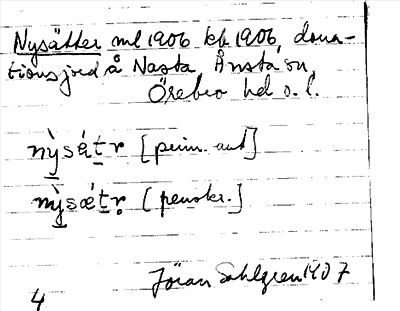 Nysätter ml 1906 kb 1906, dona-
tionsjord å Nasta Ånsta sn,
Örebro hd o. l.
nỳsétr [peim. aut]
nỳsætr [penskr.]
Jöran Sahlgren 1907
4